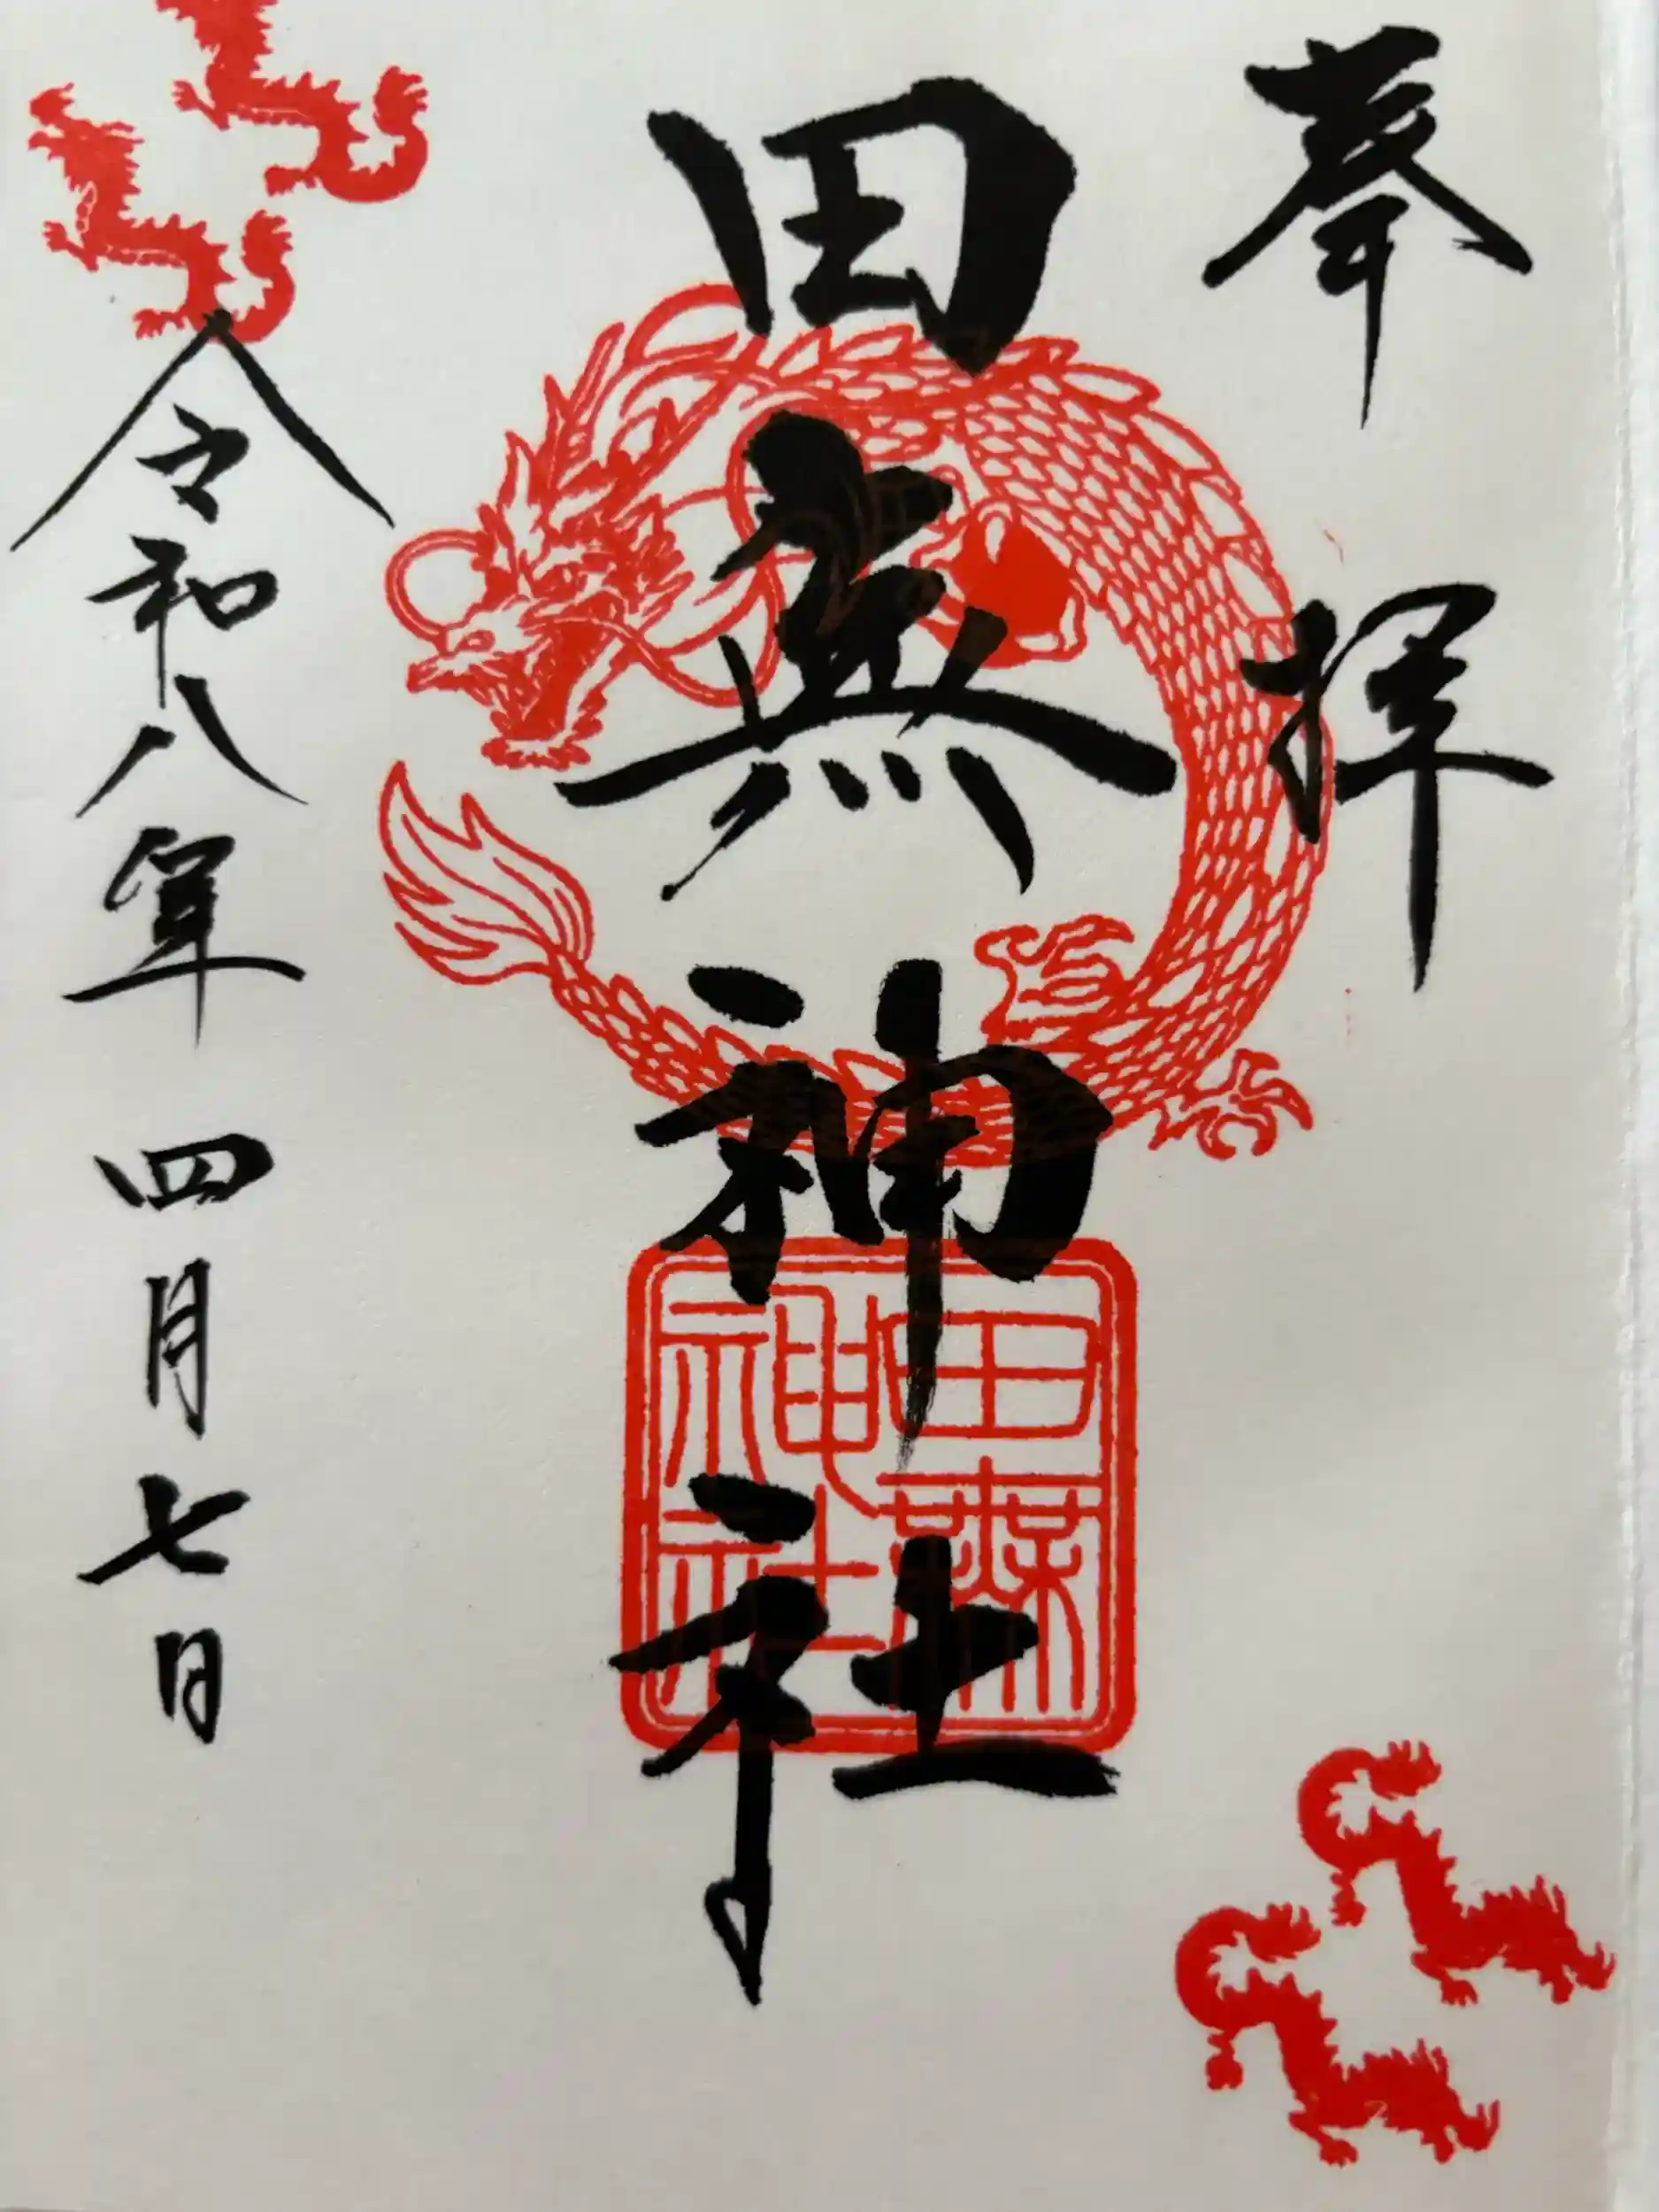 奉拝
田無神社
田無神社
令和八年四月七日